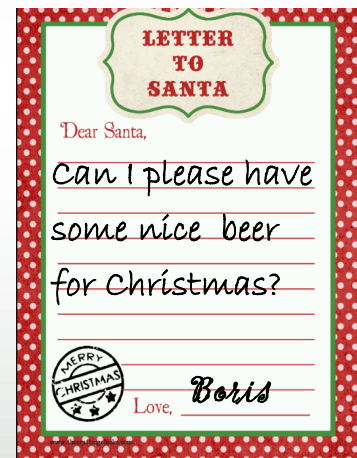 LETTER
TO
SANTA
Dear Santa,
Can I please have
some nice beer
for Christmas?
MERRY
CHRISTMAS
Love, Boris